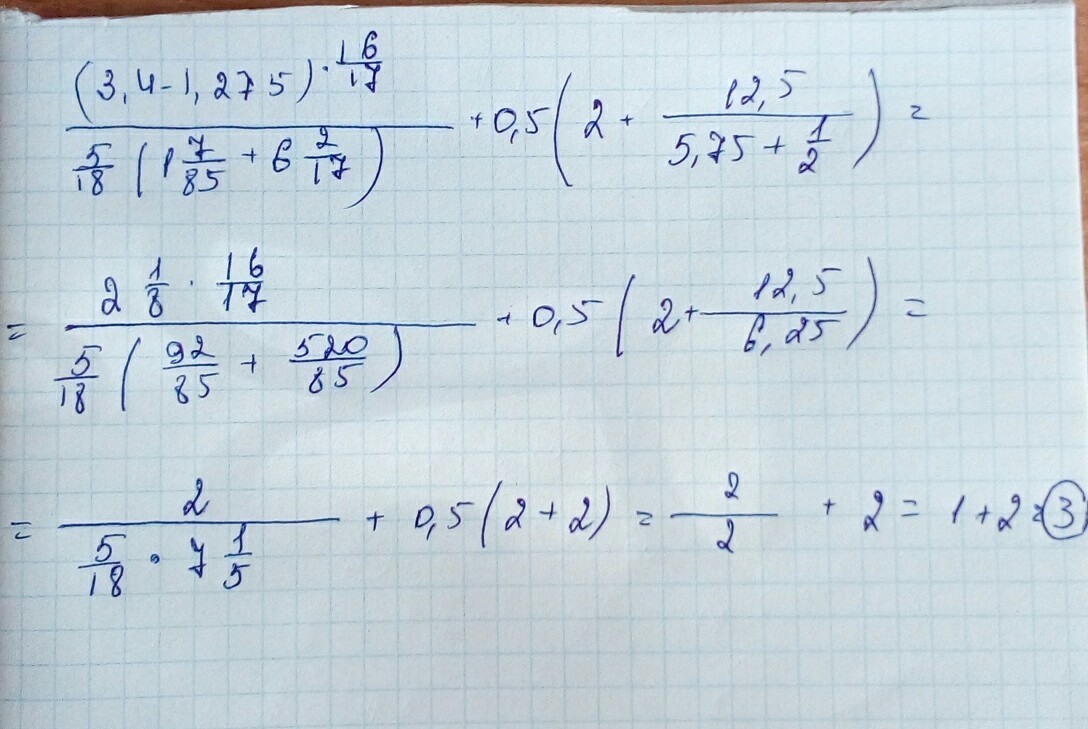 ((3,4-1,275)·16/17)/(5/18(1 7/85+6 2/17))+0,5(2+12,5/(5,75+1/2))=
=(2 1/8·16/17)/(5/18(92/85+520/85))+0,5(2+12,5/6,25)=
=2/(5/18·7 1/5)+0,5(2+2)=2/2+2=1+2=3